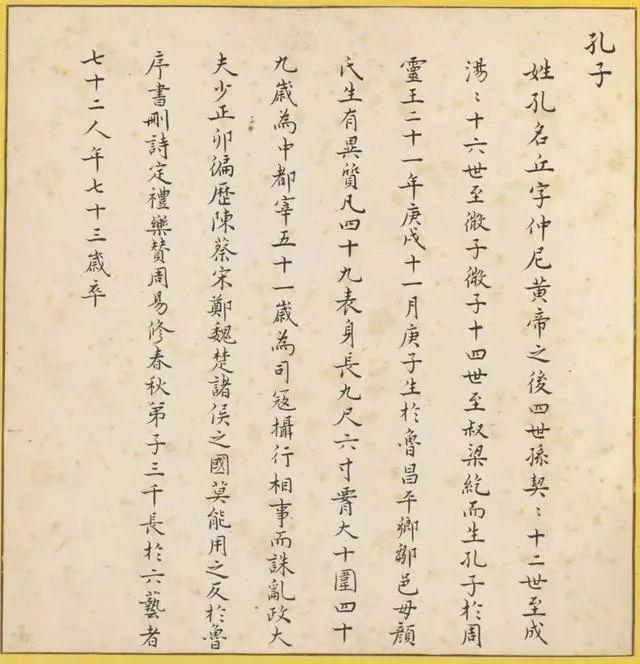 孔子
姓孔名丘字仲尼黄帝之後四世孫契〻十二世至成
湯〻十六世至微子微子十四世至叔梁紇而生孔子於周
靈王二十一年庚戌十一月庚子生於魯昌平鄉鄹邑母顏
氏生有異質凡四十九表身長九尺六寸腰大十圍四十
九歲為中都宰五十一歲為司寇攝行相事而誅亂政大
夫少正卯徧歷陳蔡宋鄭魏楚諸侯之國莫能用之反於魯
序書刪詩定禮樂贊周易修春秋弟子三千長於六藝者
七十二人年七十三歲卒